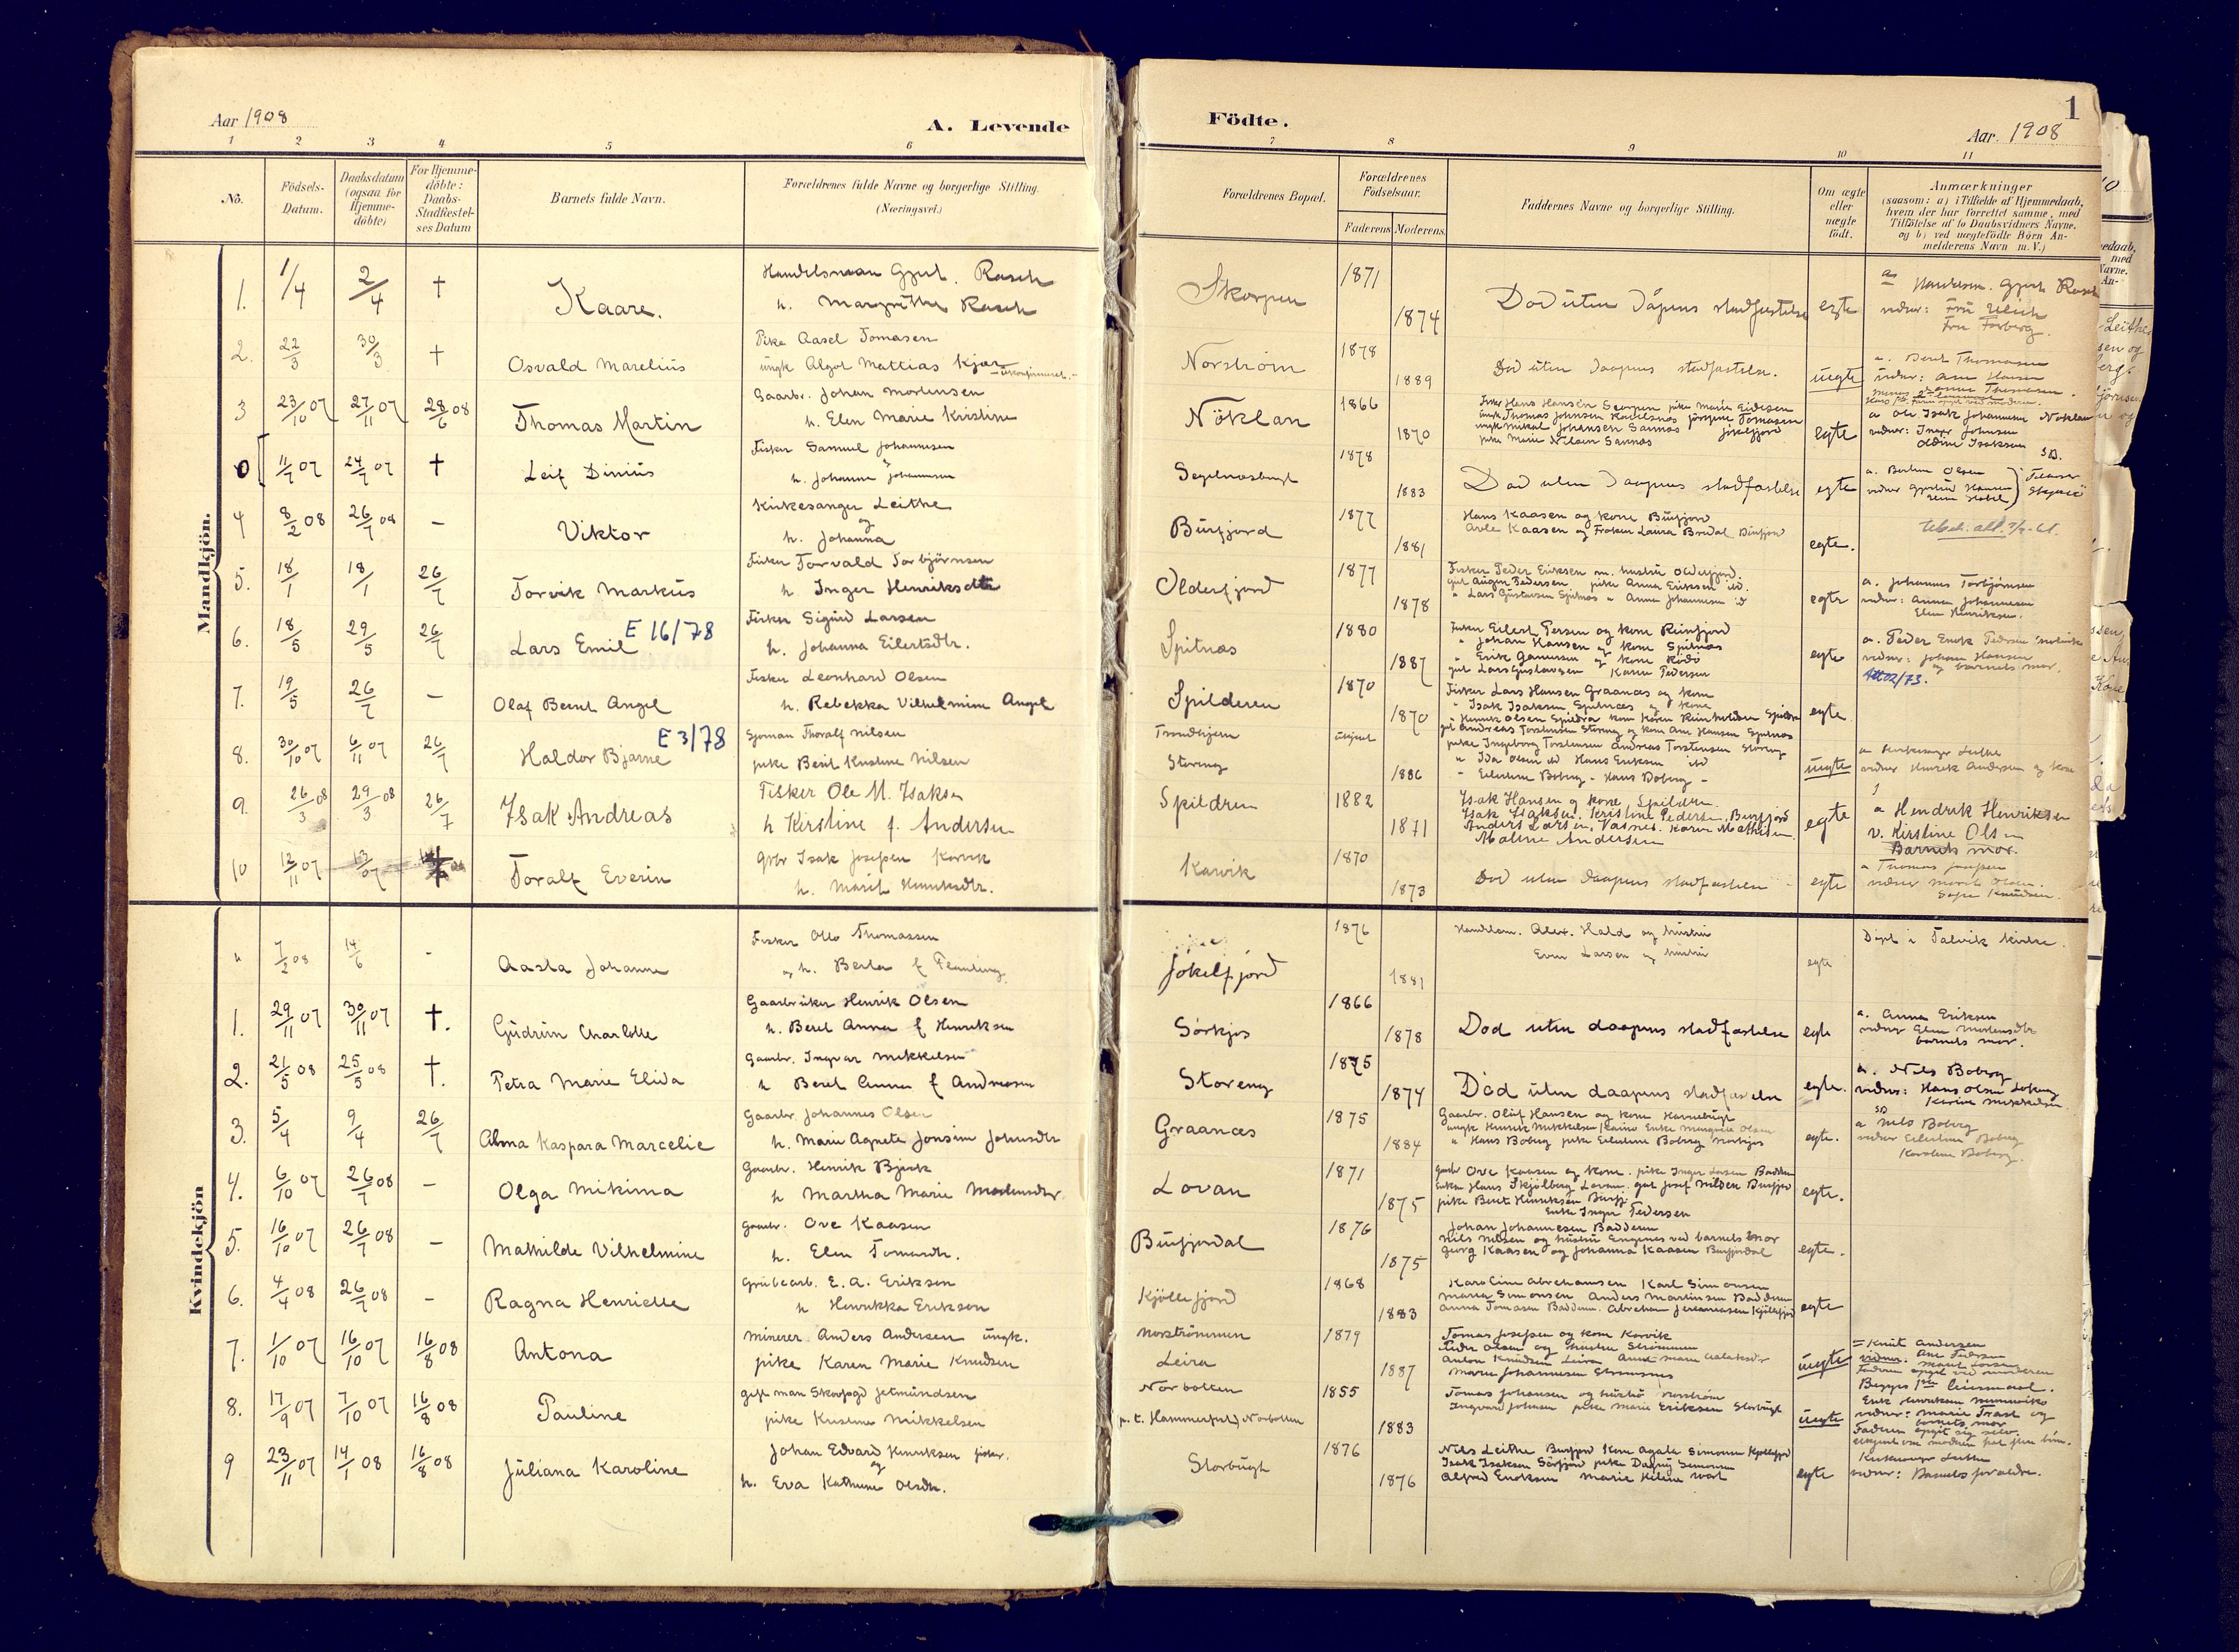 Aar 1908
A. Levende
1 2 3 4 5 6
No. Födsels-Datum. Daabsdatum (ogsaa for Hjemme-döbte) For Hjemme-döbte: Daabs-Stadfæstel-ses Datum Barnets fulde Navn. Forældrenes fulde Navne og borgerlige Stilling. (Næringsvei.)
Mandkjön.
1. 1/4 2/4 † Kaare. Handelsman Gjert. Rasch
h. Margrethe Rasch
2. 22/3 30/3 † Osvald Marelius Pike Aasel Tomasen
ungk Algot Mattias Kjær
3 23/10 07 27/11 07 28/6 08 Thomas Martin Gaarbr. Johan Mortensen
h. Elen Marie Kristine
0 11/7 07 24/7 07 † Leif Dinius Fisker Samuel Johannesen
h. Johanne Johannesen
4 8/2 08 26/7 08 – Viktor Kirkesanger Leithe
og
h. Johanna
5. 18/1 18/1 26/7 Torvik Markus Fisker Torvald Torbjörnsen
h. Inger Henriksdtr
6. 18/5 29/5 26/7 Lars Emil E 16/78 Fisker Sigurd Larsen
h. Johanna Eilertsdtr.
7. 19/5 26/7 – Olaf Bernt Angel Fisker Leonhard Olsen
h. Rebekka Vilhelmine Angel
8. 30/10 07 6/11 07 26/7 Haldor Bjarne E 3/78 Sjoman Thoralf Nilsen
pike Berit Kristine Nilsen
9. 26/3 08 29/3 08 26/7 Isak Andreas Fisker Ole M. Isaksen
h Kirstine f. Andersen
10 12/11 07 Toralf Everin Gbr Isak Josefsen Karvik
h. Marit Henriksdtr.
Kvindekjön
" 7/2 08 14/6 - Aasta Johanne Fisker Otto Thomassen
og h. Berta f Flemting
1. 29/11 07 30/11 07 †. Gudrun Charlotte Gaarbruker Henrik Olsen
h. Beret Anna f Henriksen
2. 21/5 08 25/5 08 †. Petra Marie Elida Gaarbr. Ingvar Mikkelsen
h Beret Anna f Andreasen
3. 5/4 9/4 26/7 Alma Kaspara Marcelie Gaarbr. Johannes Olsen
h. Marie Agnete Jonsine Johnsdtr
4. 6/10 07 26/7 08 – Olga Mikima Gaarbr. Henrik Bjerk
h Martha Marie
5. 16/10 07 26/7 08 – Mathilde Vilhelmine Gaarbr. Ove Kaasen
h. Elen Tomasdtr.
6. 4/4 08 26/7 08 – Ragna Henriette Grubearb. E. A. Erikson
h Henrikka Erikson
7. 1/10 07 16/10 07 16/8 08 Antona Minerer Anders Andersen ungk.
pike Karen Marie Knudsen
8. 17/9 07 7/10 07 16/8 08 Pauline gift man Jetmundsen
pike Kristine Mikkelsen
9 23/11 07 14/1 08 16/8 08 Juliana Karoline Johan Edvard Henriksen fisker.
og
h. Eva Kathrine Olsdtr.
Födte.
1
Aar. 1908
7 8 9 10 11
Forældrenes Bopæl. Forældrenes Födselsaar. Faderens Moderens. Faddernes Navne og borgerlige Stilling. Om ægte eller uægte födt. Anmærkninger (saasom: a) i Tilfælde af Hjemmedaab, hvem der har forrettet samme, med Tilföielse af to Daabsvidners Navne. og b) ved uægtefödte Börn An-melderens Navn m. V.)
Skorpen 1871 1874 Död uten dåpens stadfestelse egte a. Handelsm. Gjert Rasch
vidner: Fru Ulich
Fru Forberg.
Norström 1878 1889 Död uten daapens stadfæstelse. uegte a. Beret Thomasen
vidner: Ane Hansen
Nöklan 1866 1870 Fisker Hans Hansen Skorpen pike Marie Eidesen
ungk Thomas Johnsen
ungk Mikal Johansen Sannes Jökelfjord
pike Marie Nilsen Sannes egte a Ole Isak Johannesen Nöklan
vidner: Inger Johnsen
Oldine Isaksen
Segelnesbugt 1878 1883 Död uten daapens stadfæstelse egte a. Berten Olsen
Burfjord 1877 1881 Hans Kaasen og kone Burfjord
Arle Kaasen og Fröken Laura Bredal Burfjord egte.
Olderfjord 1877 1878 Fisker Peder Eriksen m. hustru Olderfjord.
gut August Pedersen pike Anna Eriksen ib.
" Lars Gustavsen Spilnes " Anna Johannesen ib egte a. Johannes Torbjörnsen
vidner: Anna Johannesen
Elen Henriksen.
Spilnæs 1880 1887 Fisker Eilert Persen og kone Reinfjord
" Johan Hansen og kone Spilnæs
" Erik og kone Rödö
gut Lars Gustavsen Karen Pedersen egte a. Peder Enok Pedersen
vidner: Johan Hansen
og barnets mor.
Spilderen 1870 1870 Fisker Lars Hansen Graanæs og kone
" Isak Isaksen Spilnæs og kone
" Henrik Olsen Spildra kone Karen egte 02/73.
Trondhjem
Storeng ubekjent 1886 pike Ingeborg Torstensen Andreas Torstensen Storeng
" Ida Olsen ib Hans Eriksen ib
" Eilertine Boberg - Hans Boberg - uegte a Kirkesanger Leithe
vidner Henrik Andersen og kone
Spildren 1882 1871 Isak Hansen og kone Spildren.
Isak Isaksen, Kristine Pedersen, Burfjord
Anders Larsen, Vasnes. Karen Mathisen.
Malene Andersen egte a Hendrik Henriksen
v. Kirstine Olsen
Barnets mor.
Karvik 1870 1873 Död uten daapens stadfæstelse egte a Thomas Josefsen
vidner Marit Olsen.
Sofie Knudsen.
Jökelfjord 1876 1881 Handelsm. Alex. Hald og hustru
Even Larsen og hustru egte Döpt i Talvik kirke.
Sörkjos 1866 1878 Död uten daapens stadfæstelse egte a. Anna Eriksen
vidner Elen Mortensdtr
barnets mor.
Storeng 1875 1874 Död uten daapens stadfæstelse egte. a. Nils Boberg
vidner: Hans Olsen
Karine Mikkelsen
Graanæs 1875 1884 Gaarbr. Oluf Hansen og kone Havnebugt
ungk Henrik Mikkelsen Enke Margrete Olsen
" Hans Boberg pike Eilertine Boberg Storkjos egte. a Nils Boberg
vidner Eilertine Boberg
Karoline Boberg.
Lovan 1871 1875 Gaarbr Ove Kaasen og kone. pike Inger Larsen Baddern
Enkem Hans Skjölberg Lovan. gut Josef Nilsen Burfjor
pike Berit Henriksen Burfj.
Enke Inger Pedersen egte.
Burfjordal 1876 1875 Johan Johannesen Badderen
Nils Nilsen og hustru Engenes ved barnets mor
Georg Kaasen og Johanna Kaasen Burfjordal egte.
Kjöllefjord 1868 1883 Karoline Abrahamsen Karl Simonsen
Maria Simonsen Anders Martinsen Badderen
Anna Tomasen Badderen. Abraham Jeremiasen Kjöllefjor egte
Norströmmen
Leira 1879 1887 Tomas Josefsen og kone Karvik
Peder Olsen og hustru Strömmen
Anton Knudsen Leira Anne Marie
Marie Johannesen uegte = Knut Andersen
vidner: Ane Pedersen
Marit Larsen
Fadren opgit ved moderen
Begges 1ste leiermaal.
Norbotten
p. t. Hammerfest, Norbotten 1855 1883 Tomas Johansen og hustru Norström
Ingvard Johnsen pike Marie Eriksen Storbugt uegte Erik Henriksen
vidner: Marie Trast og
barnets mor
Fadren opgit sig selv.
Storbugt 1876 1876 Nils Leithe Burfjord kone Agata Simonsen Kjöllefjord
Isak Isaksen Sörfjord pike Dagny Simonsen
Alfred Eriksen Marie Helene egte Kirkesanger Leithe
vidner: Barnets foraldre.